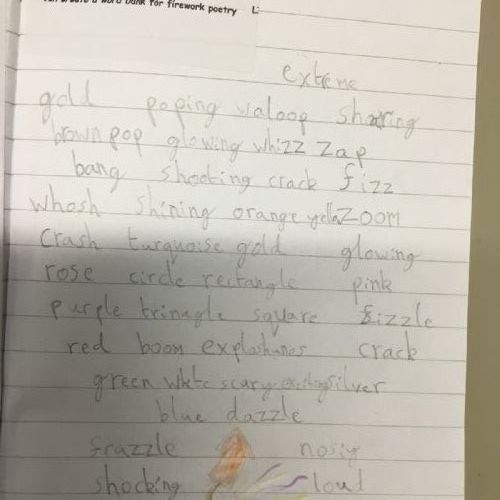 create a word bank for firework poetry L:
extreme
gold poping waloop sharring
brown pop glowing whizz zap
bang shooting crack fizz
whosh shining orange yella ZOOM
crash turquoise gold glowing
rose circle rectangle pink
purple trinagle square fizzle
red boom explashunos crack
green white scary silver
blue dazzle
frazzle nosiy
shocking loud